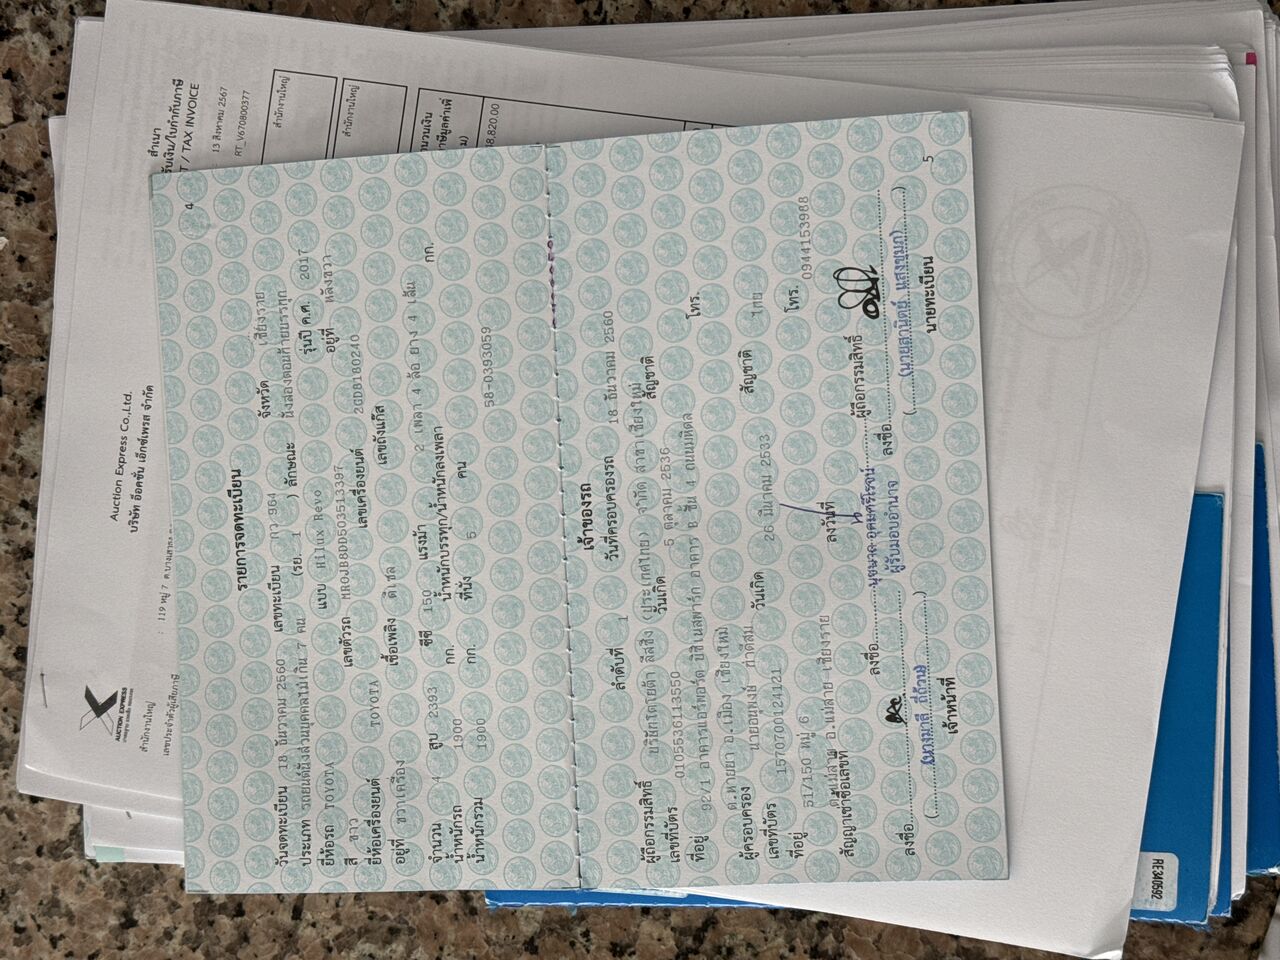 4
รายการจดทะเบียน
วันจดทะเบียน 18 ธันวาคม 2560 เลขทะเบียน กว 964 จังหวัด เชียงราย
ประเภท รถยนต์นั่งส่วนบุคคลไม่เกิน 7 คน (รย. 1 ) ลักษณะ นั่งสองตอนท้ายบรรทุก
ยี่ห้อรถ TOYOTA แบบ Hilux Revo รุ่นปี ค.ศ. 2017
สี ขาว เลขตัวรถ MR0JB8DD503513397 อยู่ที่ หลังขวา
ยี่ห้อเครื่องยนต์ TOYOTA เลขเครื่องยนต์ 2GDB180240
อยู่ที่ ขวาเครื่อง เชื้อเพลิง ดีเซล เลขถังแก๊ส
จำนวน 4 สูบ 2393 ซีซี 150 แรงม้า 2 เพลา 4 ล้อ ยาง 4 เส้น
น้ำหนักรถ 1900 กก. น้ำหนักบรรทุก/น้ำหนักลงเพลา กก.
น้ำหนักรวม 1900 กก. ที่นั่ง 5 คน
58-0393059
เจ้าของรถ
ลำดับที่ 1 วันที่ครอบครองรถ 18 ธันวาคม 2560
ผู้ถือกรรมสิทธิ์ บริษัทโตโยต้า ลีสซิ่ง (ประเทศไทย) จำกัด สาขาเชียงใหม่
เลขที่บัตร 0105536113550 วันเกิด 5 ตุลาคม 2536 สัญชาติ
ที่อยู่ 92/1 อาคารแอร์พอร์ต บิซิเนสพาร์ก อาคาร B ชั้น 4 ถนนมหิดล
ต.หายยา อ.เมือง เชียงใหม่ โทร.
ผู้ครอบครอง นายอนุพงษ์
เลขที่บัตร 1570700124121 วันเกิด 26 มีนาคม 2533 สัญชาติ ไทย
ที่อยู่ 51/150 หมู่ 6
ต.แม่สาย อ.แม่สาย เชียงราย โทร. 0944153988
สัญญาเช่าซื้อเลขที่ ลงวันที่
ลงชื่อ ผู้ถือกรรมสิทธิ์
ผู้รับมอบอำนาจ
ลงชื่อ ลงชื่อ
เจ้าหน้าที่ นายทะเบียน
5
สำเนา
TAX INVOICE
13 สิงหาคม 2567
RT_V670800377
สำนักงานใหญ่
สำนักงานใหญ่
Auction Express Co.,Ltd.
บริษัท อ็อคชั่น เอ็กซ์เพรส จำกัด
119 หมู่ 7
AUCTION EXPRESS
สำนักงานใหญ่
เลขประจำตัวผู้เสียภาษี
RE340592